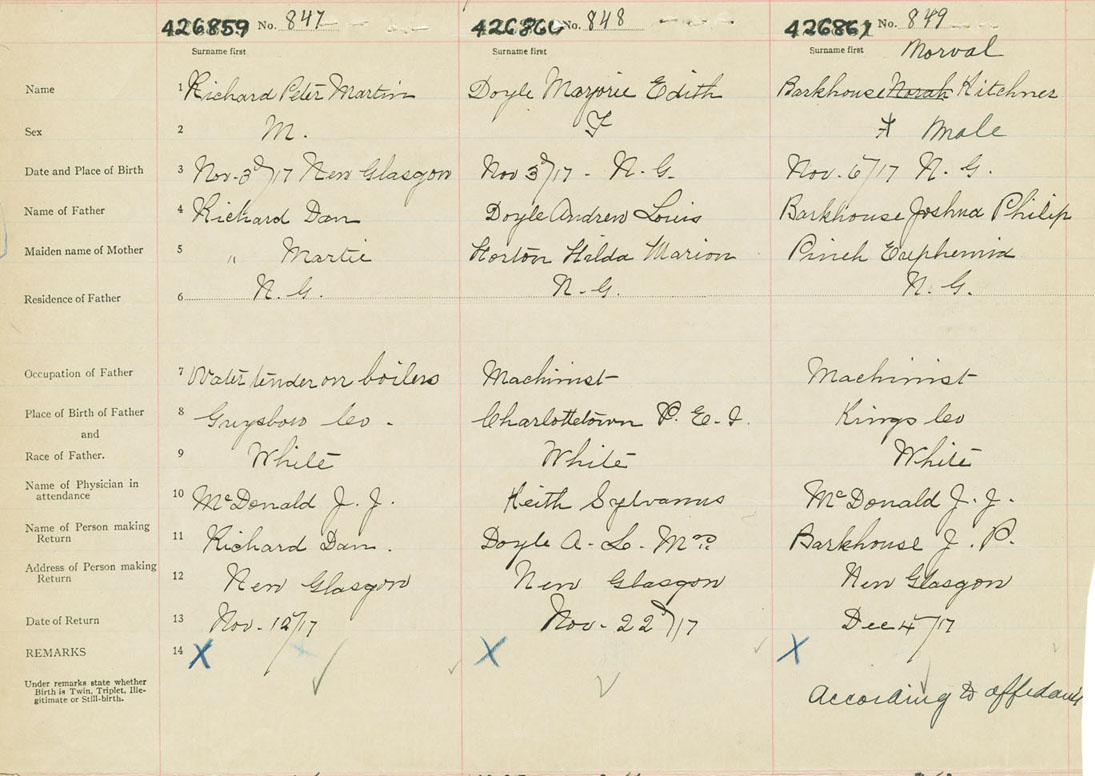 426859 No. 847 426860 No. 848 426861 No. 849
Surname first Surname first Surname first Morval
Name 1 Richard Peter Martin Doyle Marjorie Edith Barkhouse Norah Kitchner
Sex 2 M. F F Male
Date and Place of Birth 3 Nov. 3d/17 New Glasgow Nov 3d/17 - N. G. Nov. 6/17 N. G.
Name of Father 4 Richard Dan Doyle Andrew Louis Barkhouse Joshua Philip
Maiden name of Mother 5 " Martie Horton Hilda Marion Pinch Euphemia
Residence of Father 6 N. G. N. G. N. G.
Occupation of Father 7 Water tender on boilers Machinist Machinist
Place of Birth of Father 8 Guysboro Co. Charlottetown P. E. I. Kings Co
and
Race of Father. 9 White White White
Name of Physician in attendance 10 McDonald J. J. Keith Sylvanus McDonald J. J.
Name of Person making Return 11 Richard Dan. Doyle A. L. Mrs Barkhouse J. P.
Address of Person making Return 12 New Glasgow New Glasgow New Glasgow
Date of Return 13 Nov. 12/17 Nov. 22d/17 Dec 4/17
REMARKS 14 X X X
Under remarks state whether
Birth is Twin, Triplet, Ille-
gitimate or Still-birth. According to affidavit